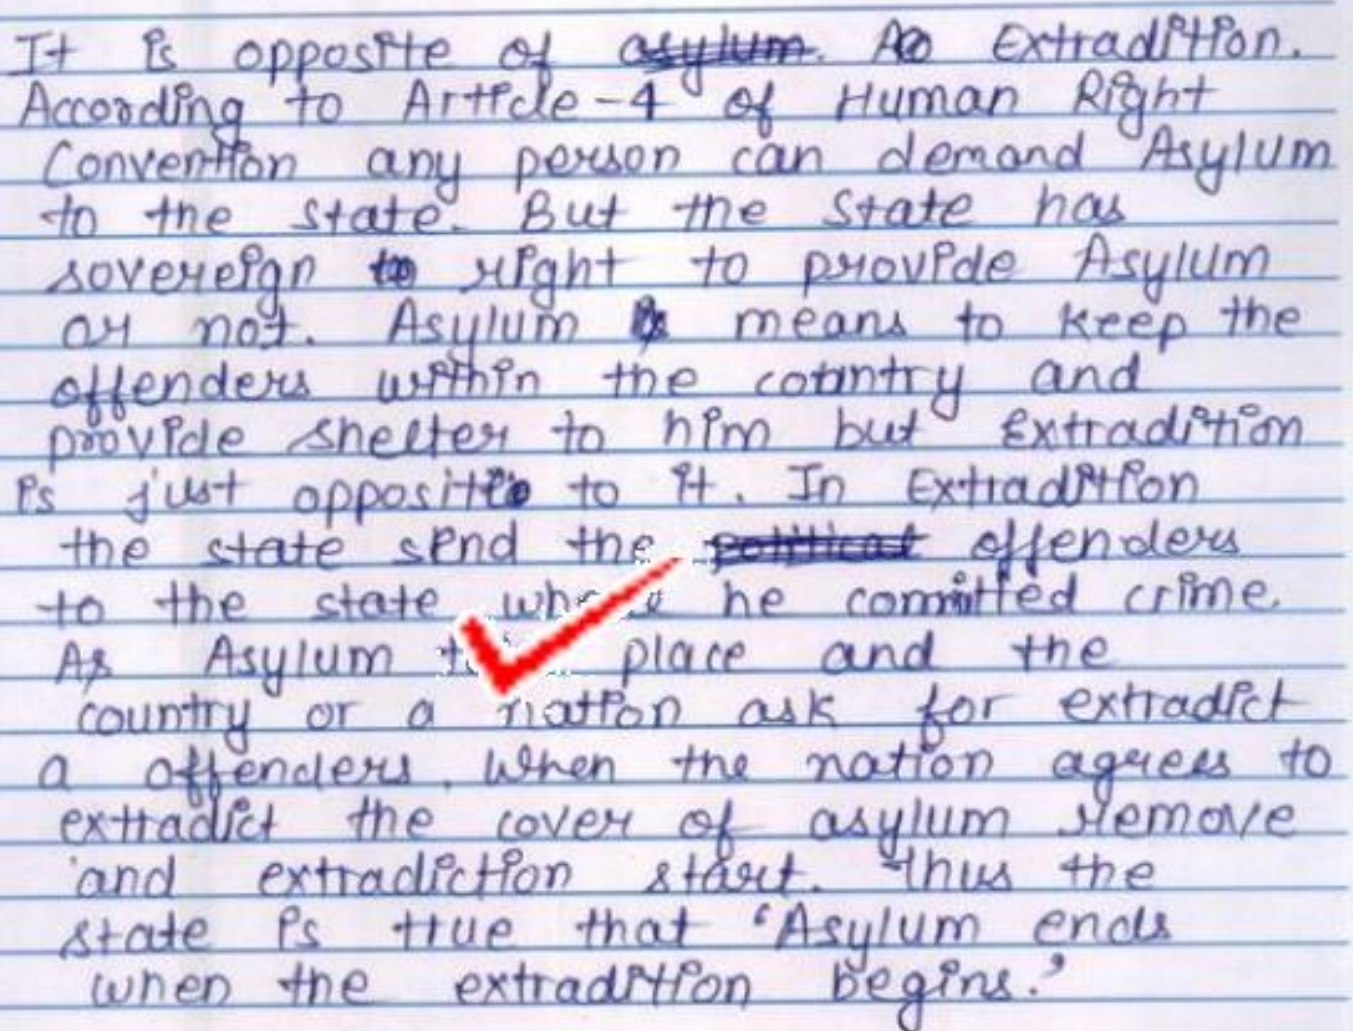 It is opposite of asylum. Extradition.
According to Article-4 of Human Right
Convention any person can demand Asylum
to the state. But the state has
sovereign right to provide Asylum
or not. Asylum means to keep the
offenders within the country and
provide shelter to him but Extradition
is just opposite to it. In Extradition
the state send the political offenders
to the state where he committed crime.
As Asylum place and the
country or a nation ask for extradict
a offenders. When the nation agrees to
extradict the cover of asylum remove
and extradiction start. Thus the
state is true that 'Asylum ends
when the extradition begins.'